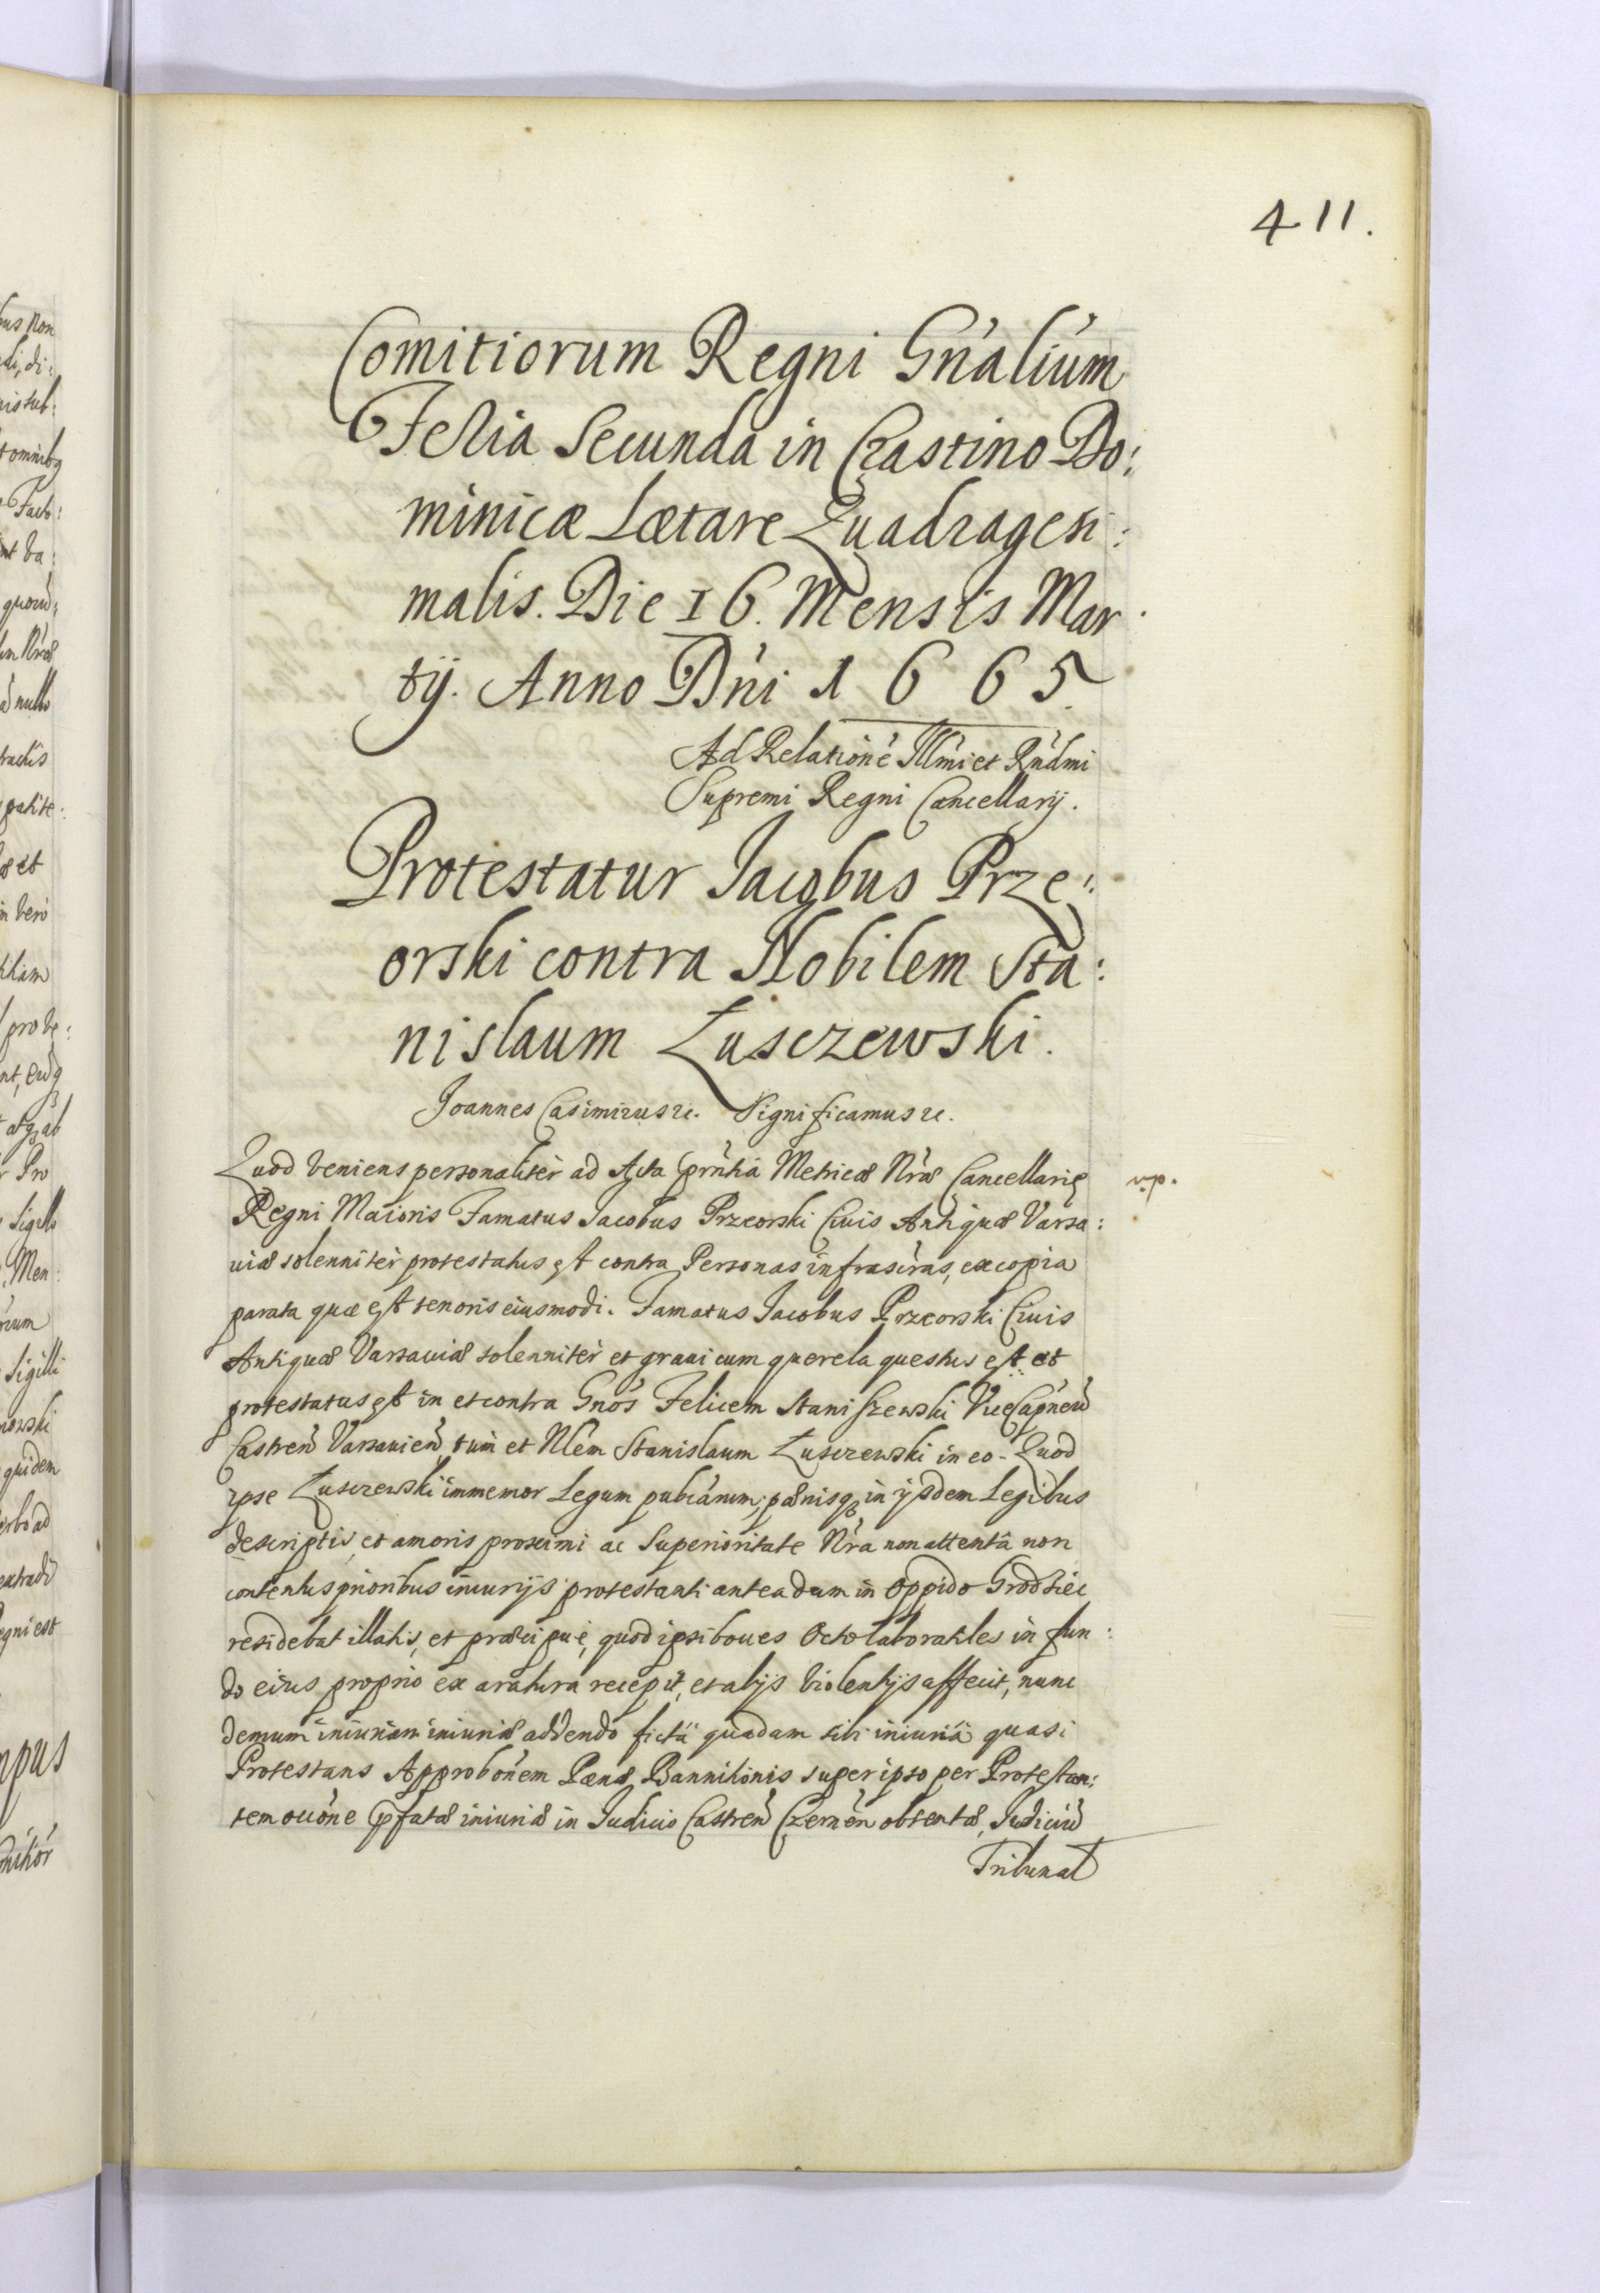 411.
Comitiorum Regni Gn'alium
Feria Secunda in Crastino Do:
minicæ Lætare Quadragesi:
malis. Die 16. Mensis Mar
tij. Anno D'ni 1665.
Ad Relatione Ill'mi et R'ndmi
Supremi Regni Cancellarij.
Protestatur Jacobus Prze:
orski contra Nobilem Sta:
nislaum Łusczewski.
Joannes Casimirus rc. Significamus rc.
Quod veniens personaliter ad Acta pr'ntia Metricæ N'ræ Cancellarię
Regni Maioris Famatus Jacobus Przeorski Civis Antiquæ Varsa:
uiæ solenniter protestatus est contra Personas infrascr'as, ex copia
parata quæ est tenoris eiusmodi. Famatus Jacobus Przeorski Civis
Antiquæ Varsauiæ solenniter et graui cum querela questus est et
protestatus est in et contra Gn'os Felicem Staniszewski ViceCap'neu
Castren Varsauien, tum et N'lem Stanislaum Łusczewski in eo. Quod
ipse Łusczewski immemor Legum publ'carum, pænisq, in ijsdem Legibus
descriptis, et amoris proximi ac Superioritate N'ra non attenta non
contentus prioribus iniurijs protestanti antea dum in Oppido Grodziec
residebat illatis, et præcipue, quod ipsi boues Octo laboratiles in fun:
do eius proprio ex aratura recepit, et alijs violentijs affecit, nunc
demum iniuriam iniuriæ addendo ficta quadam sibi iniuria quasi
Protestans Approbo'nem Pænæ Bannitionis super ipso per Protestan:
tem o'ne p'fatæ iniuriæ in Judicio Castren Czernen obtentæ, Judiciu
Tribunal